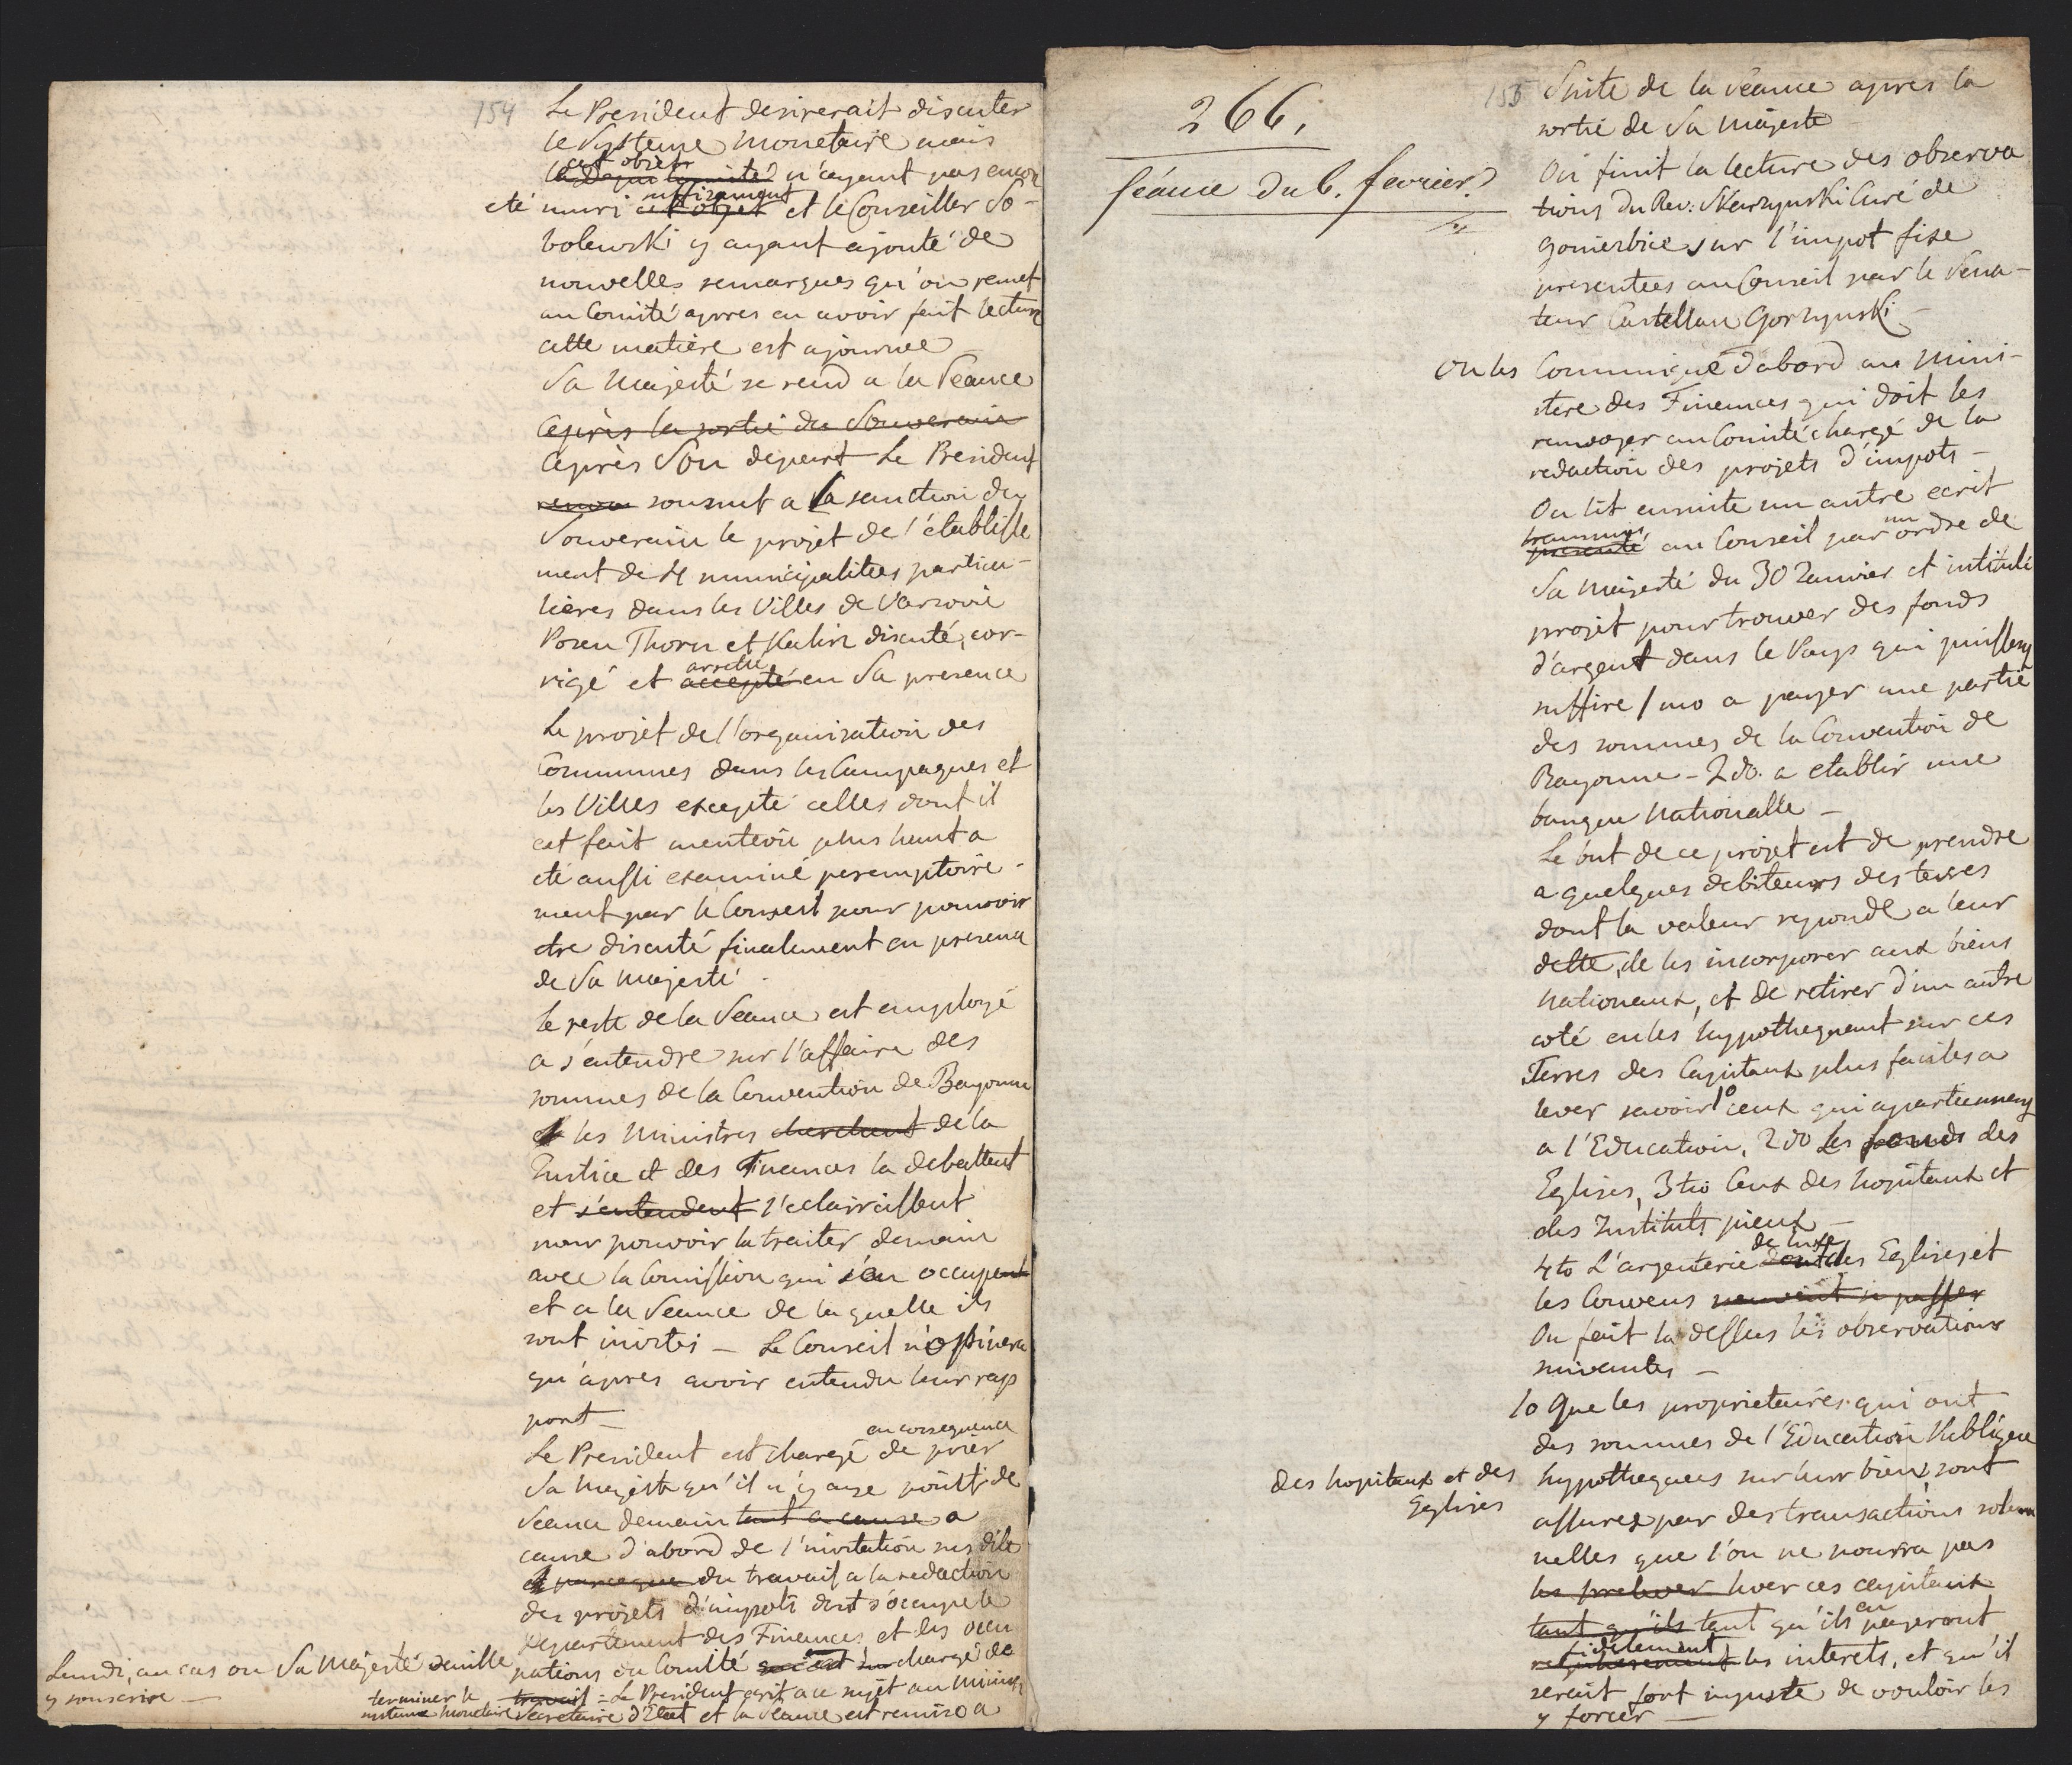 154
Le President desirerait discuter
le Systeme monetaire mais
cet objet
n'ayant pas encor
suffisament
eté muri cet objet et le Conseiller So-
bolewski y ayant ajouté de
nouvelles remarques qu'on remet
au Comité apres en avoir fait lecture
cette matiere est ajournee
Sa Majesté se rend a la Seance
Après la sortie du Souverain
Après Son depart Le President
renvoi soumet a la sanction du
Souverain le projet de l'établisse
ment de 4 municipalitees particu-
lieres dans les Villes de Varsovie
Posen Thorn et Kalin discuté, cor-
arreté
rigé et accepté en Sa presence
Le projet de l'organisation des
Communes dans les Campagnes et
les Villes excepté celles dont il
est fait mention plus haut a
eté aussi examiné peremptoire-
ment par le Conseil pour pouvoir
etre discuté finalement en presence
de Sa Majesté.
Le reste de la Seance est employé
a s'entendre sur l'affaire des
sommes de la Convention de Bayonne
et les Ministres cherchent de la
Justice et des Finances la debattent
et s'entendent l'eclaircissent
pour pouvoir la traiter demain
avec la Comission qui s'en occupent
et a la Seance de la quelle ils
sont invités — Le Conseil n'opinera
qu'apres avoir entendu leur rap
port —
en consequence
Le President est chargé de prier
Sa Majesté qu'il n'y aye point de
Seance demain tant a cause a
cause d'abord de l'invitation susdite
et parceque du travail a la redaction
des projets d'impots dont s'occupe le
Departement des Finances et les occu
pations du Comité chargé de
terminer le travail = Le President ecrit a ce sujet au Minist
systeme monetaire Secretaire d'Etat et la Seance est remise a
Lundi, au cas ou Sa Majesté veuille
y souscrire —
266.
Séance du 6. fevrier.
155
Suite de la séance apres la
sortie de Sa Majesté
On finit la lecture des observa
tions du Rev: Skarzynski Curé de
sur l'impot fixe
presentees au Conseil par le Sena-
teur Castellan Gorzynski —
On les Communique d'abord au Mini-
stere des Finances qui doit les
renvoyer au Comité chargé de la
redaction des projets d'impots —
On lit ensuite un autre ecrit
transmis un
presenté au Conseil par ordre de
Sa Majesté du 30 Janvier et intitulé
projet pour trouver des fonds
d'argent dans le Pays qui puissent
suffire 1mo a payer une partie
des sommes de la Convention de
Bayonne - 2do. a etablir une
banque Nationalle —
Le but de ce projet est de prendre
a quelques debiteurs des terres
dont la valeur reponde a leur
dette, de les incorporer aux biens
Nationaux, et de retirer d'un autre
coté en les hypothequant sur ces
Terres des Capitaux plus faciles a
lever savoir 1o ceux qui apartiennent
a l'Education, 2do Les fonds des
Eglises, 3tio Ceux des hopitaux et
des Instituts pieux —
de luxe
4to L'argenterie dont les Eglises et
les Couvens peuvent se passer
On fait la dessus les observations
suivantes —
1o Que les proprietaires qui ont
des sommes de l'Education Publique
des hopitaux et des
Eglises
hypothequees sur leur biens sont
assurez par des transactions solem
nelles que l'on ne pourra pas
les prelever lever ces capitaux
en
tant qu'ils tant qu'ils payeront
fidelement
regulierement les interets, et qu'il
serait fort injuste de vouloir les
y forcer —